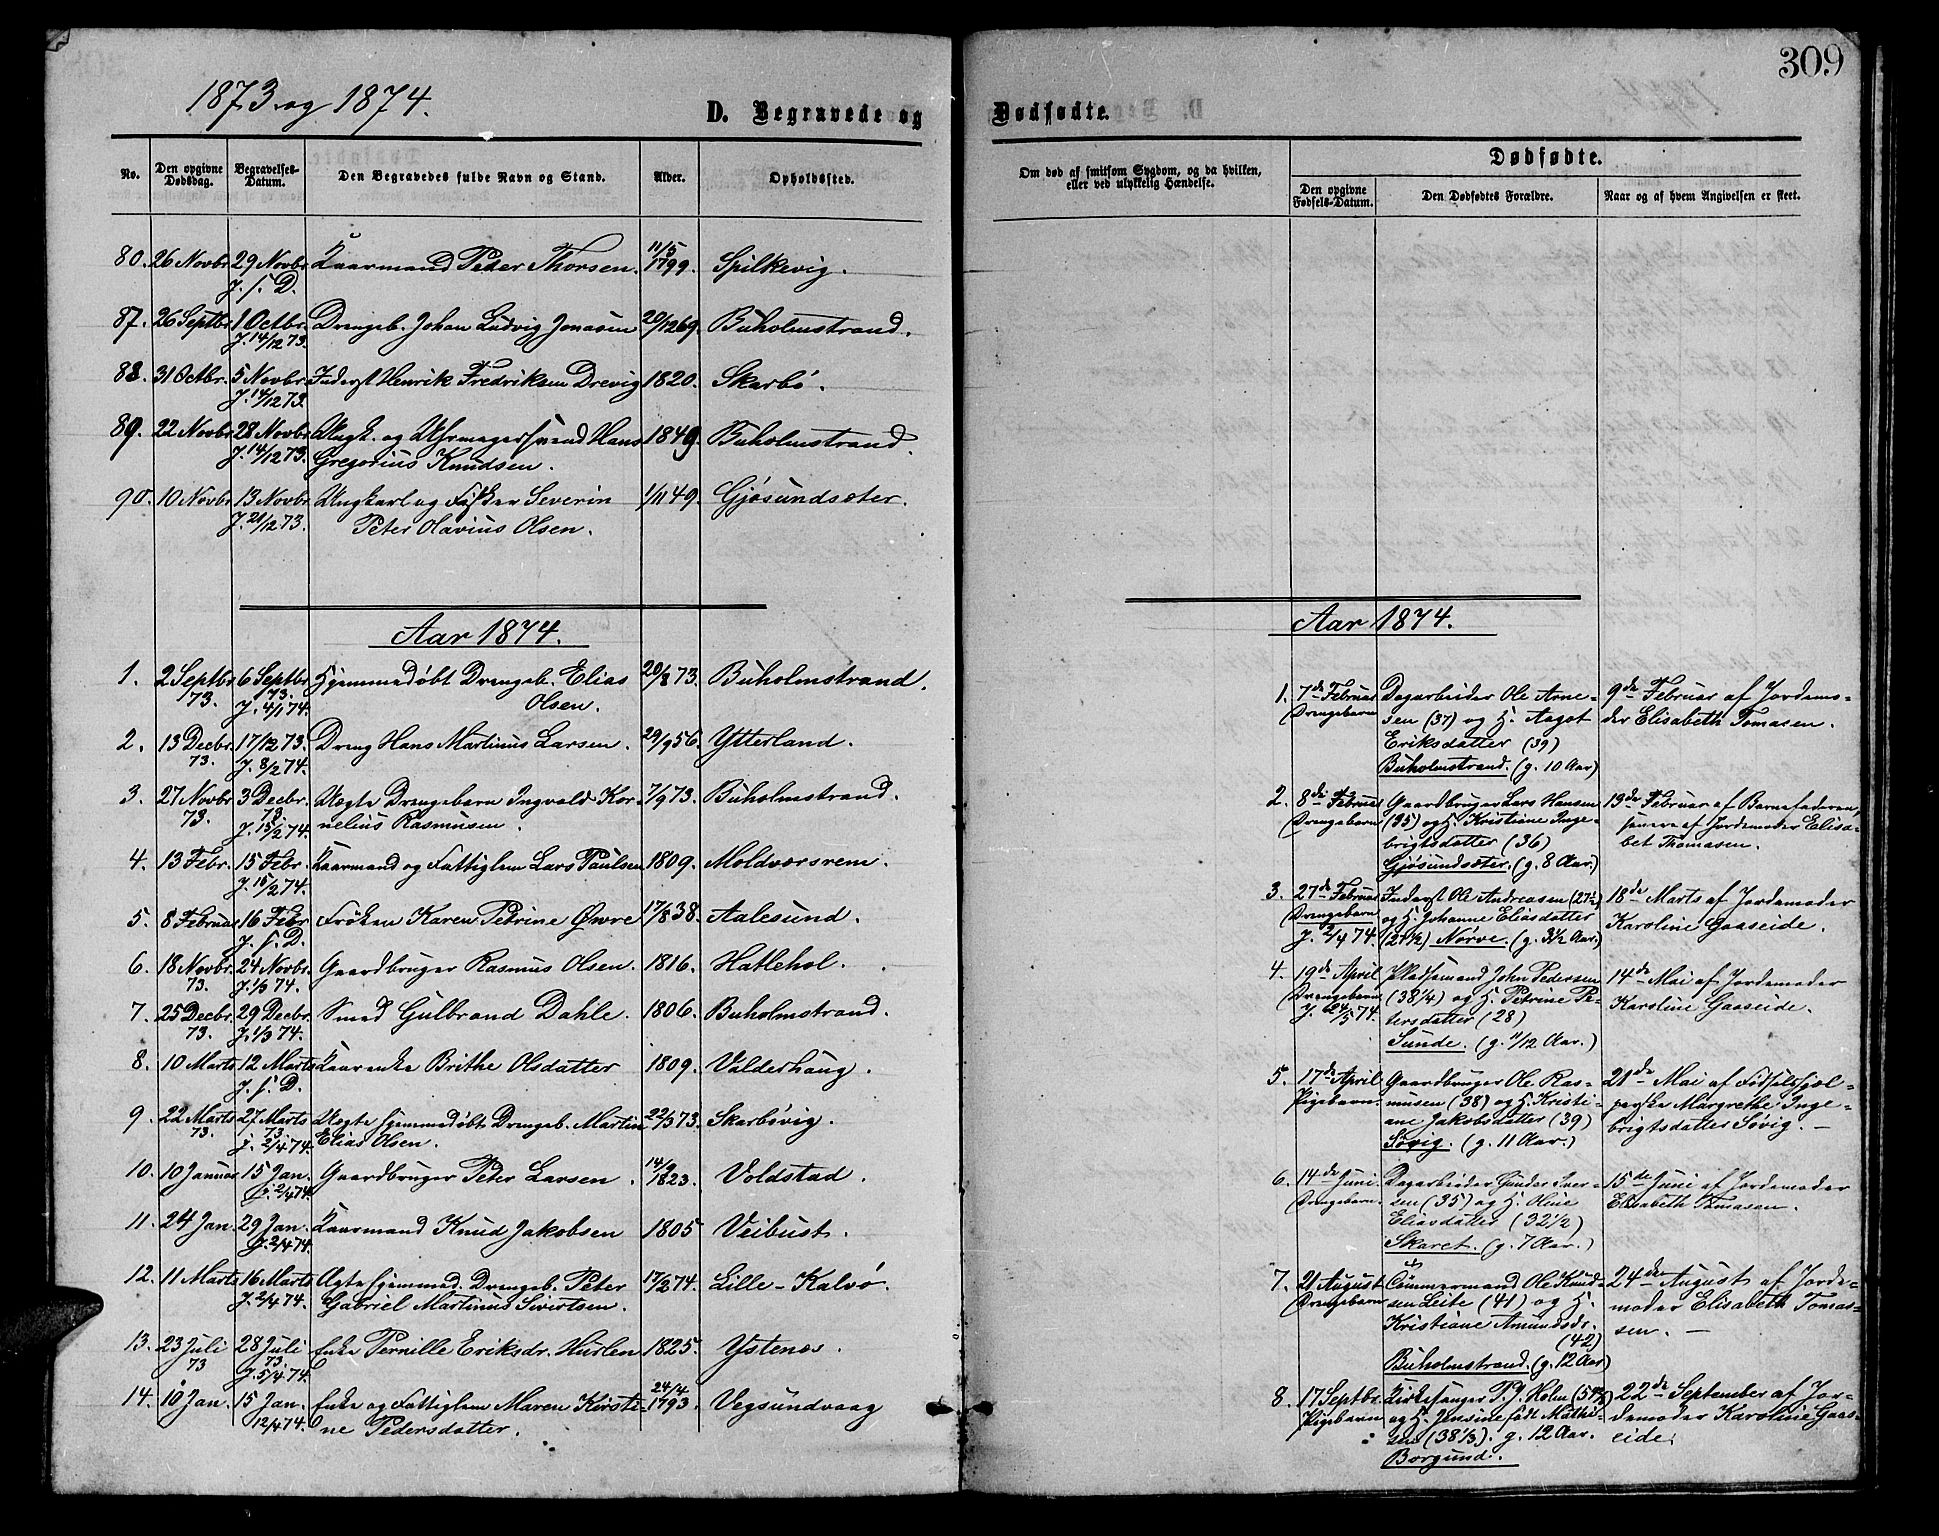 309
1873 og 1874.
D. Begravede og Dødfødte.
No. Den opgivne Dødsdag. Begravelses-Datum. Den Begravedes fulde Navn og Stand. Alder. Opholdssted.
80. 26 Novbr 29 Novbr Kaarmand Peder Thorsen. 11/5 1799. Spilkevig.
J. s. D.
87. 26 Septbr 1 Octbr. Drengeb. Johan Ludvig Jonasen 20/12 69. Buholmstrand.
J. 14/12 73.
88. 31 Octbr. 5 Novbr. Inderst Henrik Fredriksen Drevig 1820. Skarbö.
J. 14/12 73.
89. 22 Novbr 28 Novbr Ungk. og Uhrmagersvend Hans 1849. Buholmstrand.
J. 14/12 73. Gregorius Knudsen.
90. 10 Novbr 13 Novbr Ungkarl og Fisker Severin 1/11 49. Gjösundsæter.
J. 21/12 73. Peter Olavius Olsen.
Aar 1874.
1. 2 Septbr 6 Septbr Hjemmedöbt Drengeb. Elias 20/8 73. Buholmstrand.
73. 73. Olsen.
J. 4/1 74.
2. 13 Decbr. 17/12 73. Dreng Hans Martinus Larsen. 29/9 56. Ytterland.
73. J. 8/2 74.
3. 27 Novbr 3 Decbr. Uægte Drengebarn Ingvald Kor- 7/9 73. Buholmstrand.
73. 73. nelius Rasmusen.
J. 15/2 74.
4. 13 Febr. 15 Febr. Kaarmand og Fattiglem Lars Paulsen 1809. Moldværsrem.
J. 15/2 74.
5. 8 Februar 16 Febr Fröken Karen Petrine Øwre 17/8 38. Aalesund.
J. s. D.
6. 18 Novbr. 24 Novbr. Gaardbruger Rasmus Olsen. 1816. Hatlehol.
73. J. 1/3 74.
7. 25 Decbr. 29 Decbr. Smed Gulbrand Dahle. 1806. Buholmstrand.
73. J. 1/3 74.
8. 10 Marts 12 Marts Kaarenke Brithe Olsdatter 1809. Valderhaug.
J. s. D.
9. 22 Marts 27 Marts Uægte hjemmedöbt Drengeb. Martin 22/3 73. Skarbövig.
73. 73. Elias Olsen.
J. 2/4 74.
10. 10 Januar 15 Jan. Gaardbruger Peter Larsen. 14/9 1823. Voldstad.
J. 2/4 74.
11. 24 Jan. 29 Jan. Kaarmand Knud Jakobsen 1805 Veibust.
J. 2/4 74.
12. 11 Marts 16 Marts Ægte hjemmed. Drengeb. Peter 17/2 74. Lille-Kalvö.
J. 2/4 74. Gabriel Martinus Sivertsen.
13. 23 Juli 28 Juli Enke Pernille Eriksdr. Hurlen 1825. Ystenæs.
73 73.
J. 5/4 74.
14. 10 Jan. 15 Jan. Enke og Fattiglem Maren Kirsti- 24/4 1793. Vegsundvaag
12/4 74. ne Pedersdatter.
Om død af smitsom Sygdom, og da hvilken, eller ved ulykkelig Hændelse.
Dødfødte.
Den opgivne Fødsels-Datum. Den Dødfødtes Forældre. Naar og af hvem Angivelsen er skeet.
Aar 1874.
1. 7de Februar Dagarbeider Ole Arne- 9de Februar af Jordemo-
Drengebarn sen (37) og H. Aagot der Elisabeth Tomasen.
Eriksdatter (39)
Buholmstrand. (g. 10 Aar)
2. 8de Februar Gaardbruger Lars Hansen 13de Februar af Barnefaderen,
Drengebarn (35) og H. Kristiane Inge- senere af Jordemoder Elisa-
brigtsdatter (36) bet Thomasen.
Gjösundsæter. (g. 8 Aar.)
3. 27de Februar Inderst Ole Andreasen (27½) 18de Marts af Jordemoder
Drengebarn og H. Johanne Eliasdatter Karoline Gaaseide.
J. 2/4 74. (27½) Nörve. (g. 3½ Aar.)
4. 19de April Pladsemand John Pedersen 14de Mai af Jordemoder
Drengebarn (38¼) og H. Petrine Pe- Karoline Gaaseide.
J. 24/5 74. tersdatter (28)
Sunde. (g. 1/12 Aar.)
5. 17de April Gaardbruger Ole Ras- 21de Mai af Födselshjæl-
Pigebarn. musen (38) og H. Kristi- perske Margrethe Inge-
ane Jakobsdatter (39) brigtsdatter Sövig. –
Sövig. (g. 11 Aar.)
6. 14de Juni Dagarbeider Gunder Iver- 15de Juni af Jordemoder
Drengebarn. sen (35) og H. Oline Elisabeth Tomasen.
Eliasdatter (32½)
Skaret. (g. 7 Aar.)
7. 21 August Tömmermand Ole Knud- 24de August af Jorde-
Drengebarn sen Leite (41) og H. moder Elisabeth Tomas-
Kristiane Amundsdr. sen. –
(42)
Buholmstrand. (g. 12 Aar)
8. 17 Septbr. Kirkesanger P. J. Holm 22de September af Jor-
Pigebarn og H. Jensine födt Mathi- demoder Karoline Gaas-
sen (38⅓). g. 12 Aar. eide.
Borgund.